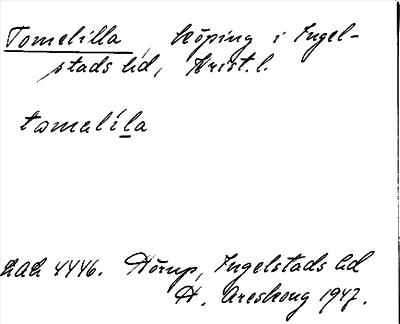 Tomelilla, köping i Ingel-
stads hd, Krist. l.
tomelíla
LAL 4446. Hörup, Ingelstads hd
H. Areskoug 1947.